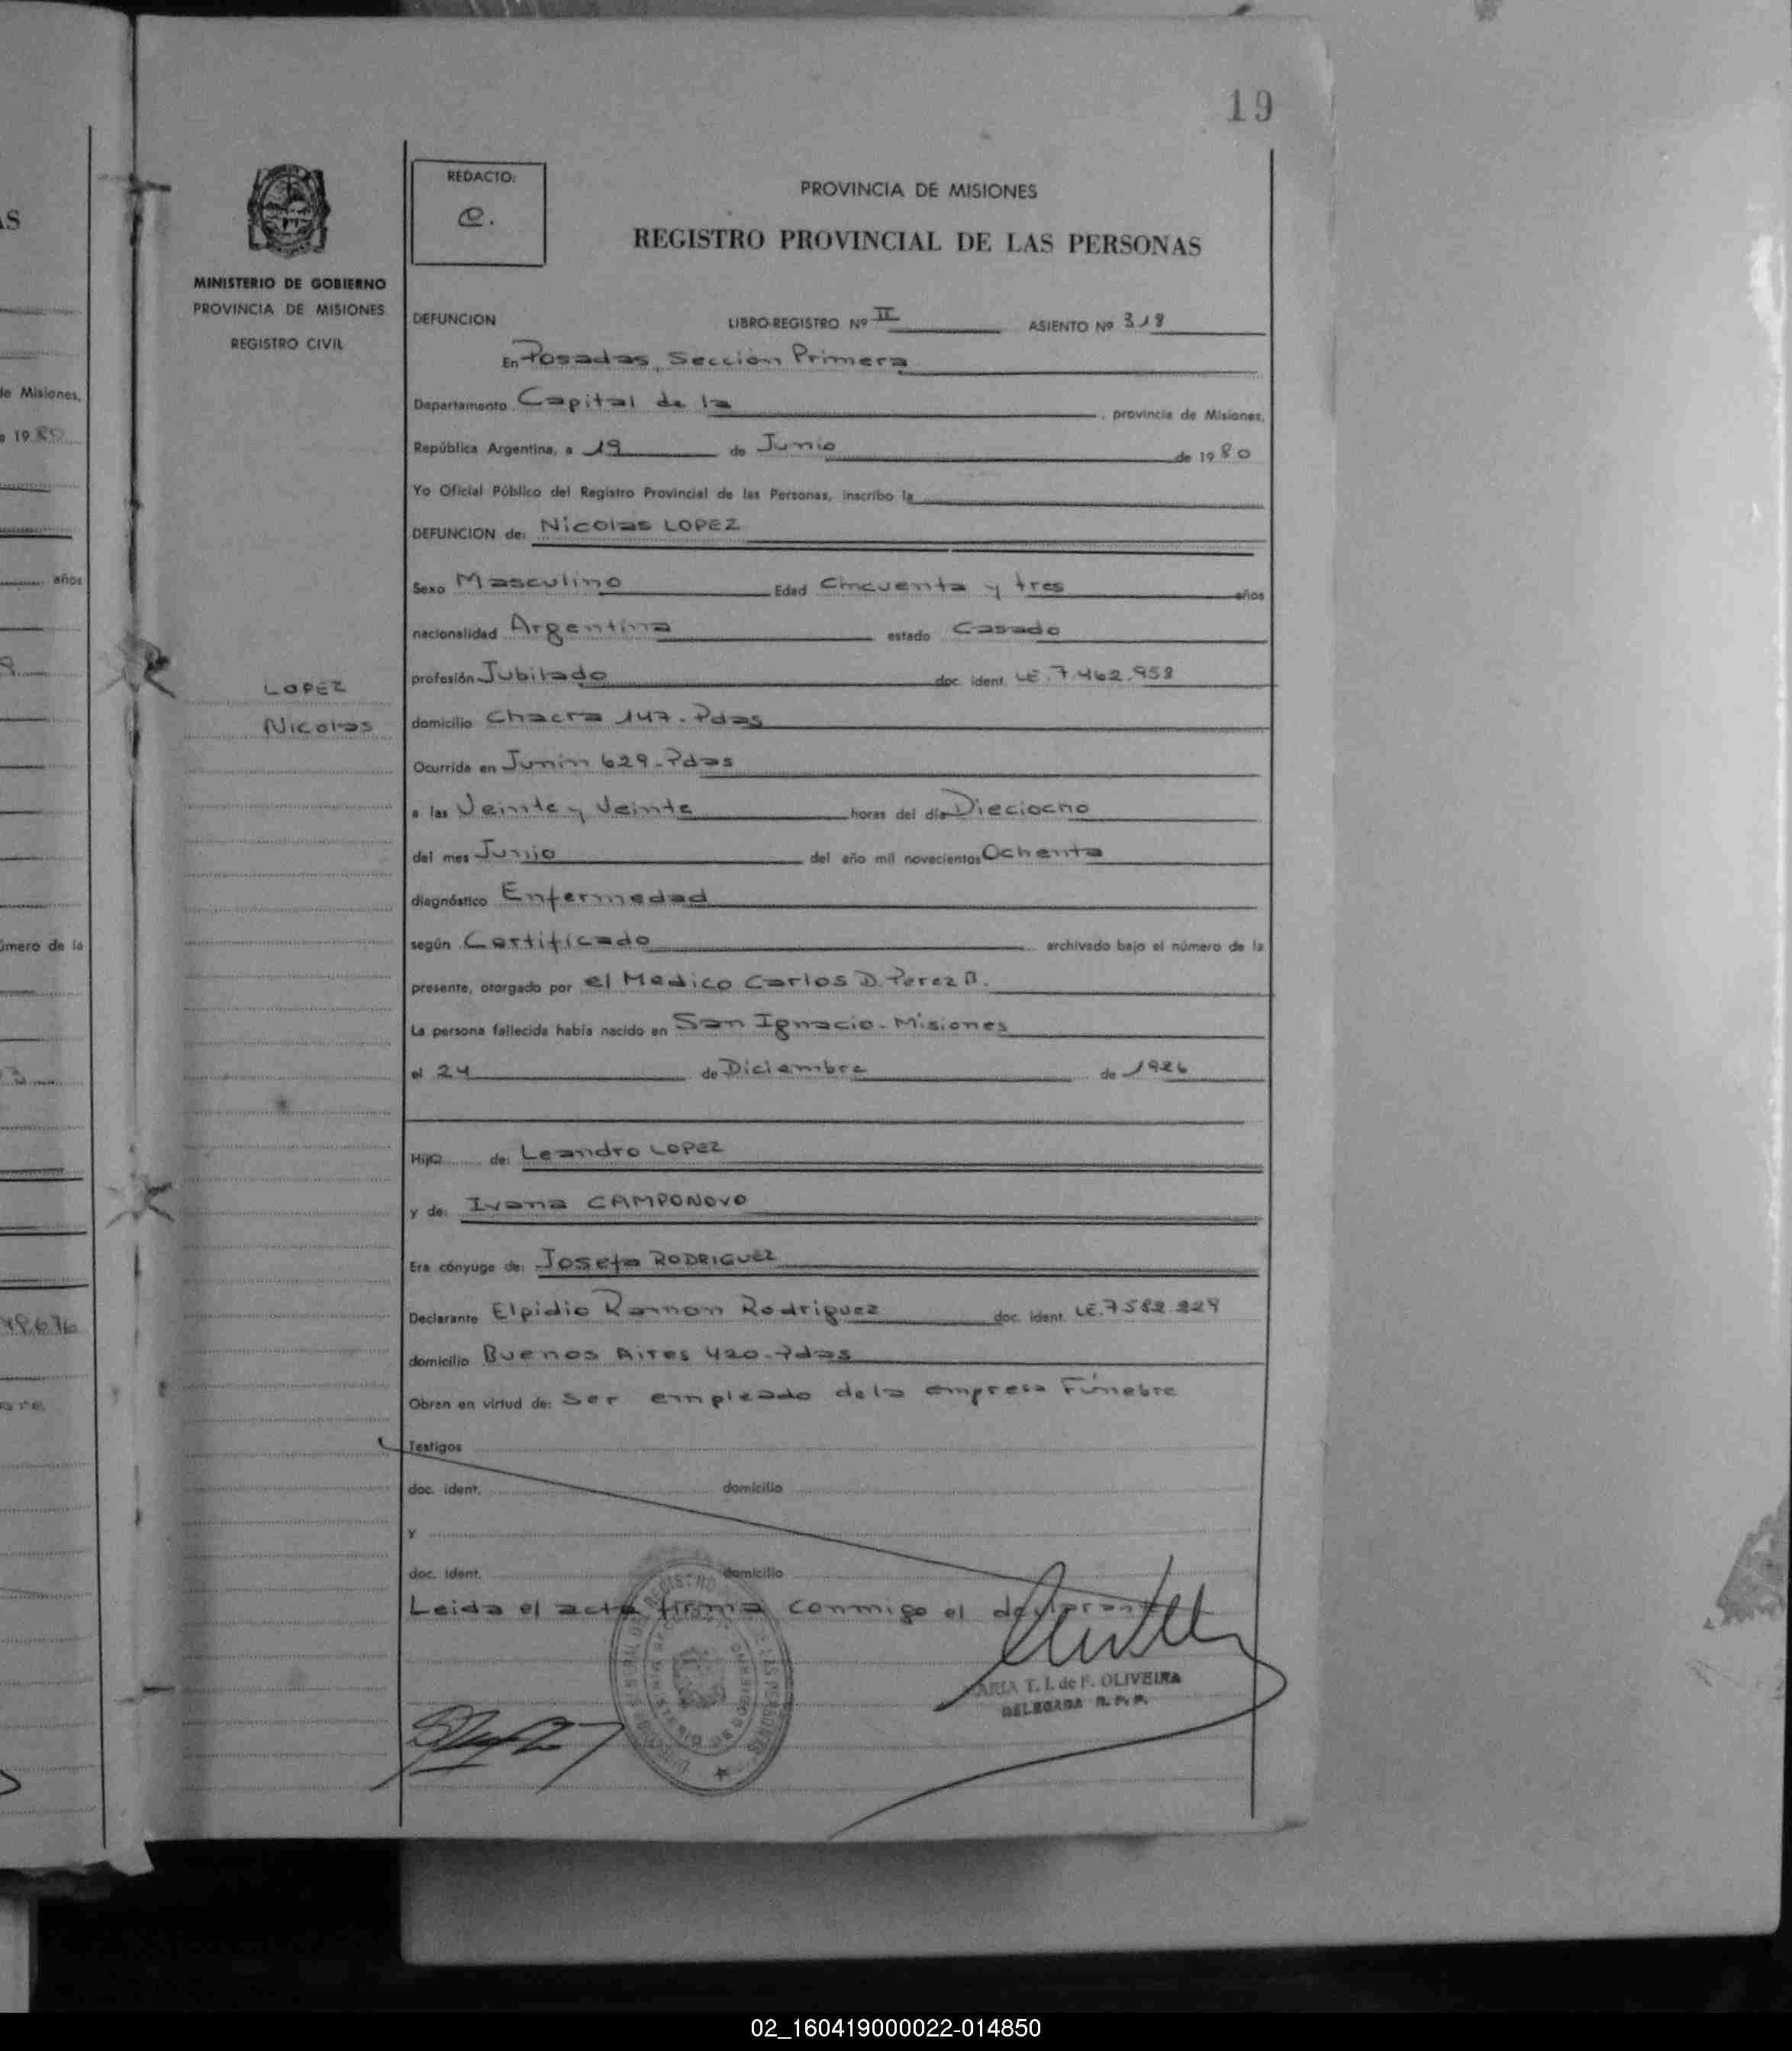 19
REDACTO:
e.
PROVINCIA DE MISIONES
REGISTRO PROVINCIAL DE LAS PERSONAS
MINISTERIO DE GOBIERNO
PROVINCIA DE MISIONES
REGISTRO CIVIL
DEFUNCION LIBRO-REGISTRO Nº II ASIENTO Nº 318
En Posadas, Sección Primera
Departamento Capital de la , provincia de Misiones,
República Argentina, a 19 de Junio de 1980
Yo Oficial Público del Registro Provincial de las Personas, inscribo la
DEFUNCION de: Nicolas LOPEZ
Sexo Masculino Edad Cincuenta y tres años
nacionalidad Argentina estado Casado
profesión Jubilado doc. ident. LE.7.462.958
LOPEZ
Nicolas
domicilio Chacra 147-Pdas
Ocurrida en Junin 629-Pdas
a las Veinte y Veinte horas del día Dieciocho
del mes Junio del año mil novecientos Ochenta
diagnóstico Enfermedad
según Certificado archivado bajo el número de la
presente, otorgado por el Medico Carlos D. Perez B.
La persona fallecida había nacido en San Ignacio-Misiones
el 24 de Diciembre de 1926
Hijo de: Leandro LOPEZ
y de: Ivana CAMPONOVO
Era cónyuge de: Josefa RODRIGUEZ
Declarante Elpidio Ramon Rodriguez doc. ident. LE.7582.229
domicilio Buenos Aires 420-Pdas
Obran en virtud de: Ser empleado de la empresa Fúnebre
Testigos
doc. ident. domicilio
y
doc. ident. domicilio
Leida el acta firma conmigo el declarante
ARIA T. I. de F. OLIVEIRA
DELEGADA R. P. P.
02_160419000022-014850